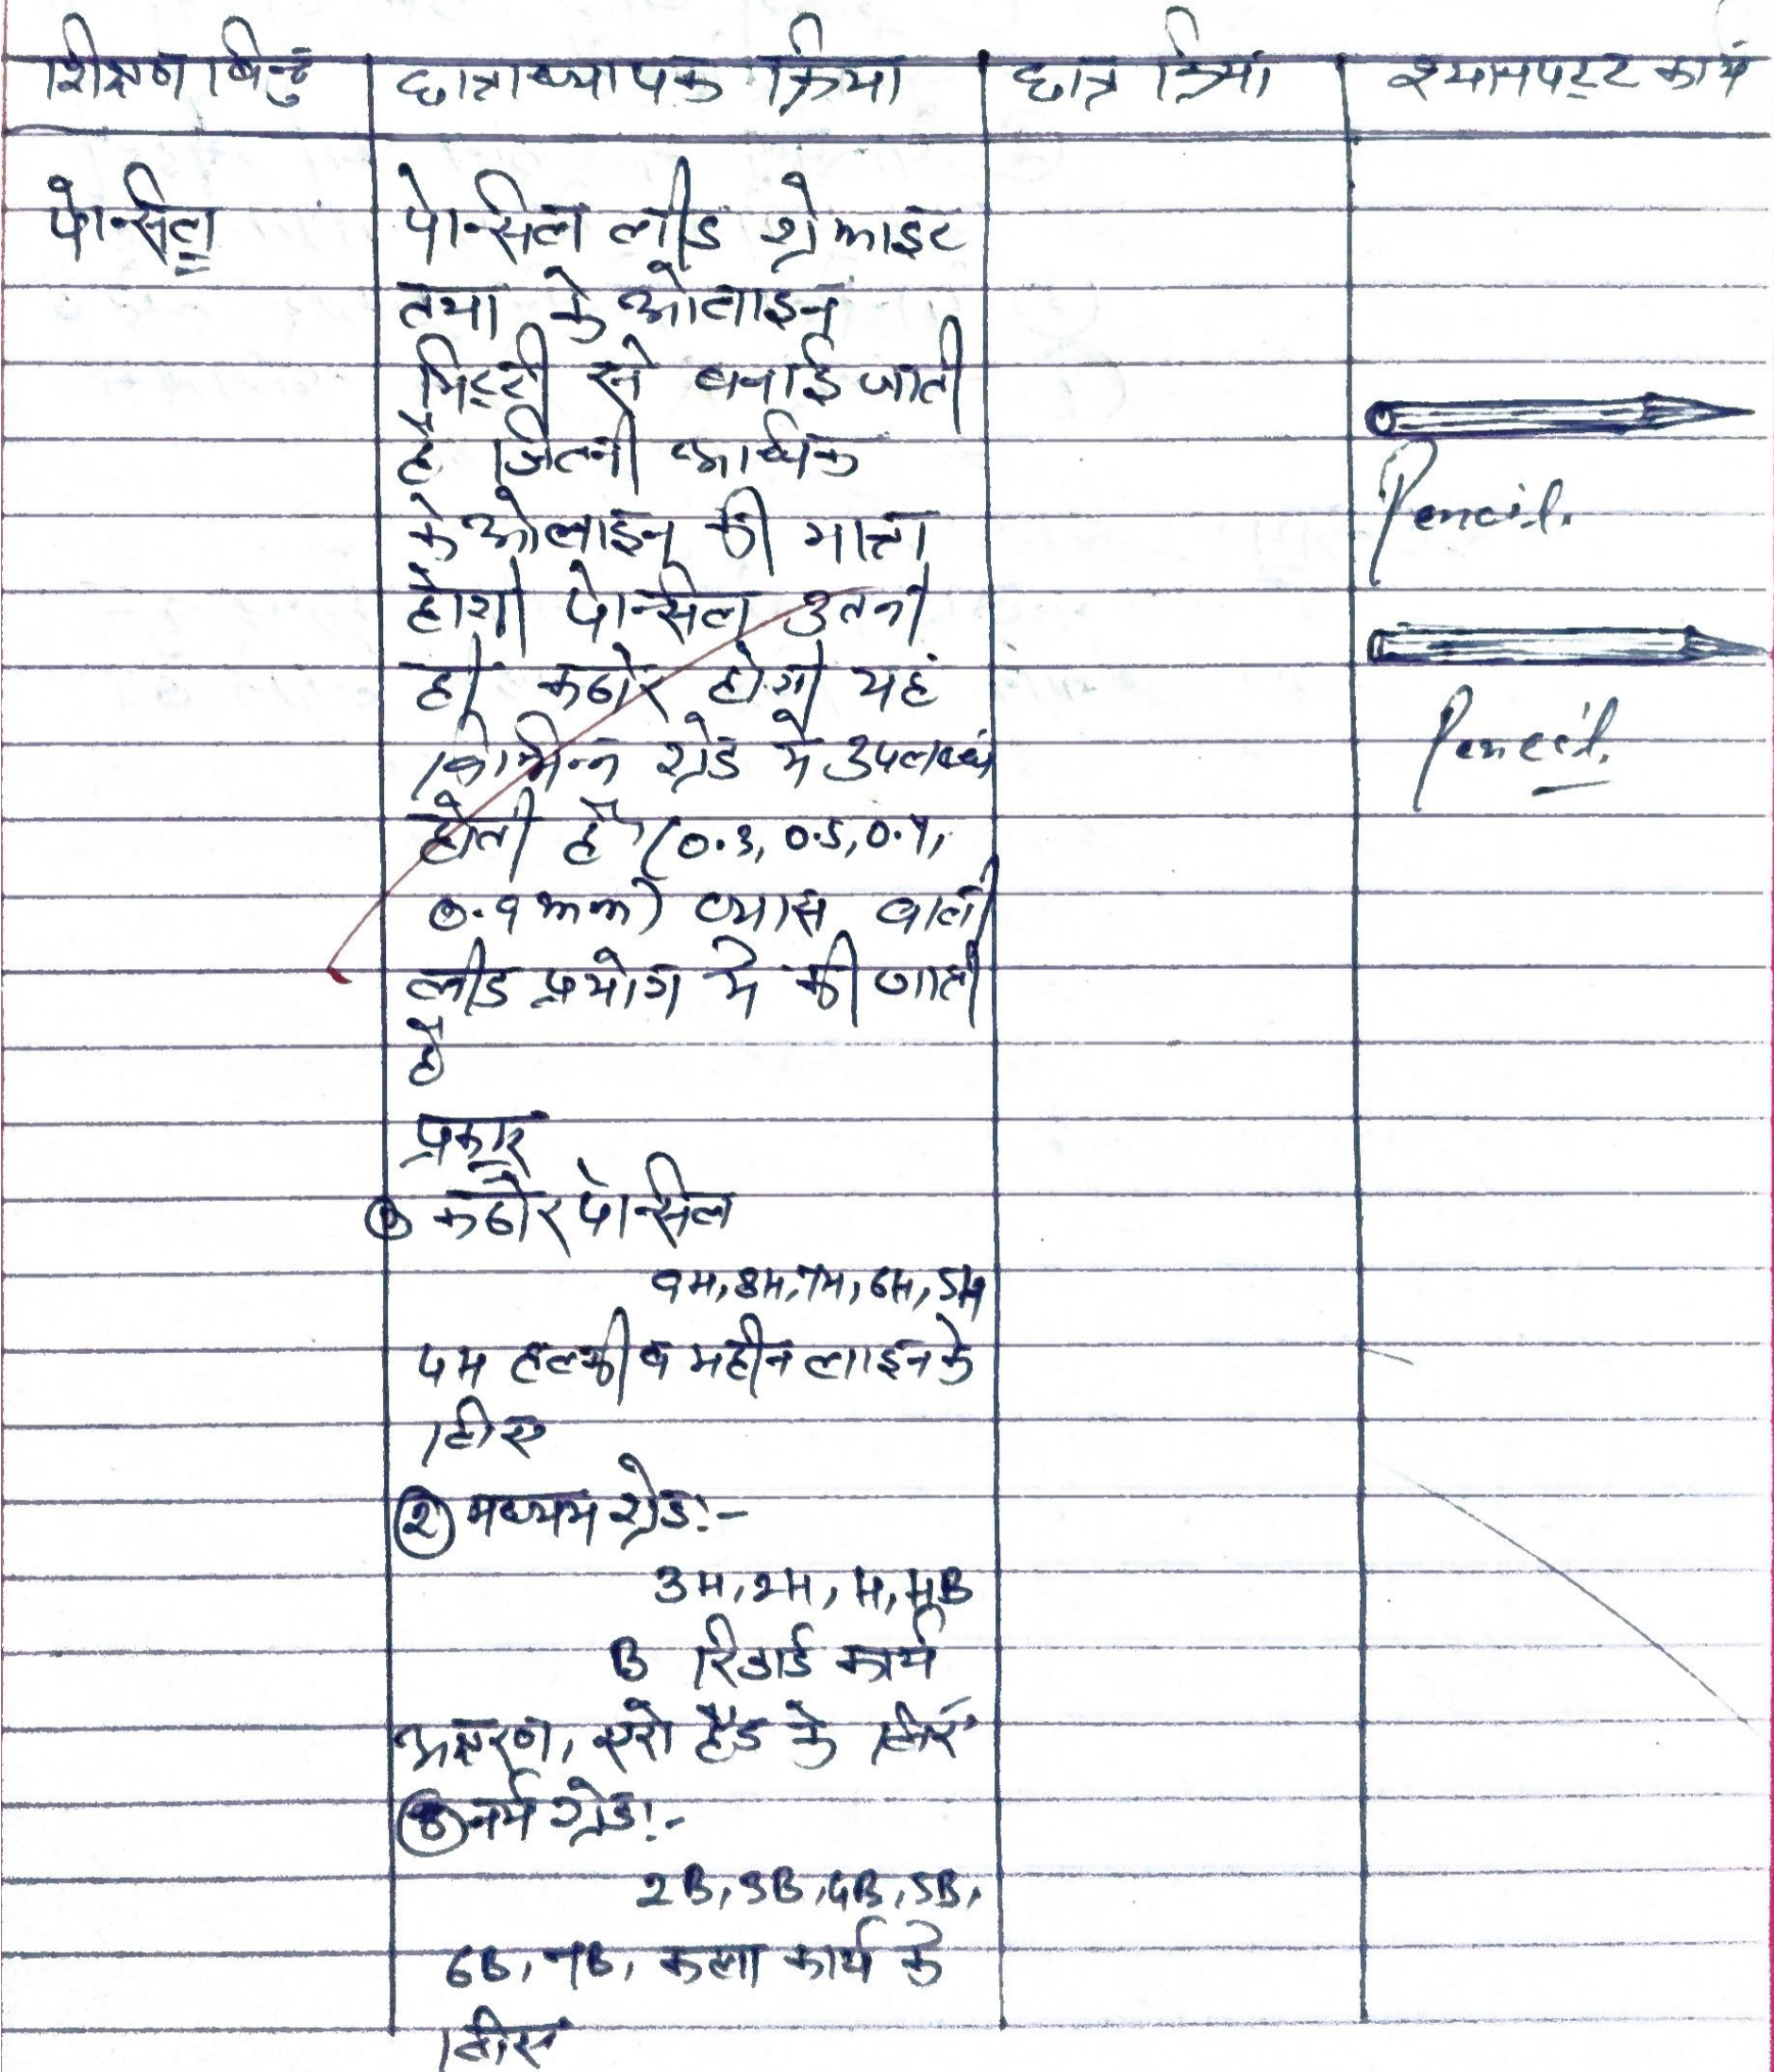 शिक्षण बिन्दु छात्राध्यापक क्रिया छात्र क्रिया श्यामपट्ट कार्य
पेन्सिल पेन्सिल लीड ग्रेफाइट
तथा केओलाइन
मिट्टी से बनाई जाती
है जितनी अधिक
केओलाइन की मात्रा
Pencil.
होगी पेन्सिल उतनी
ही कठोर होगी यह
विभिन्न ग्रेड मे उपलब्ध
Pencil.
होती है (0.3, 0.5, 0.7,
0.9 mm) व्यास वाली
लीड प्रयोग मे की जाती
है
प्रकार
① कठोर पेन्सिल
9H, 8H, 7H, 6H, 5H
4H हल्की व महीन लाइन के
लिए
② मध्यम ग्रेड:-
3H, 2H, H, HB
B रिकार्ड कार्य
अक्षरण, एरो हैड के लिए
③ नर्म ग्रेड:-
2B, 3B, 4B, 5B,
6B, 7B, कला कार्य के
लिए